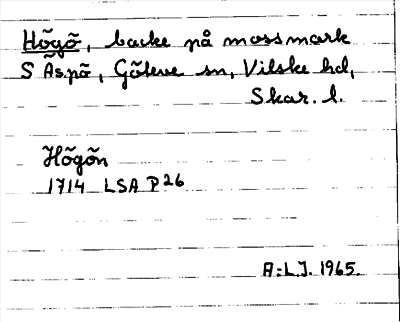 Högö, backe på mossmark
S Åspö, Göteve sn, Vilske hd,
Skar. l.
Högön
1714 LSA P26
A:L.J. 1965.